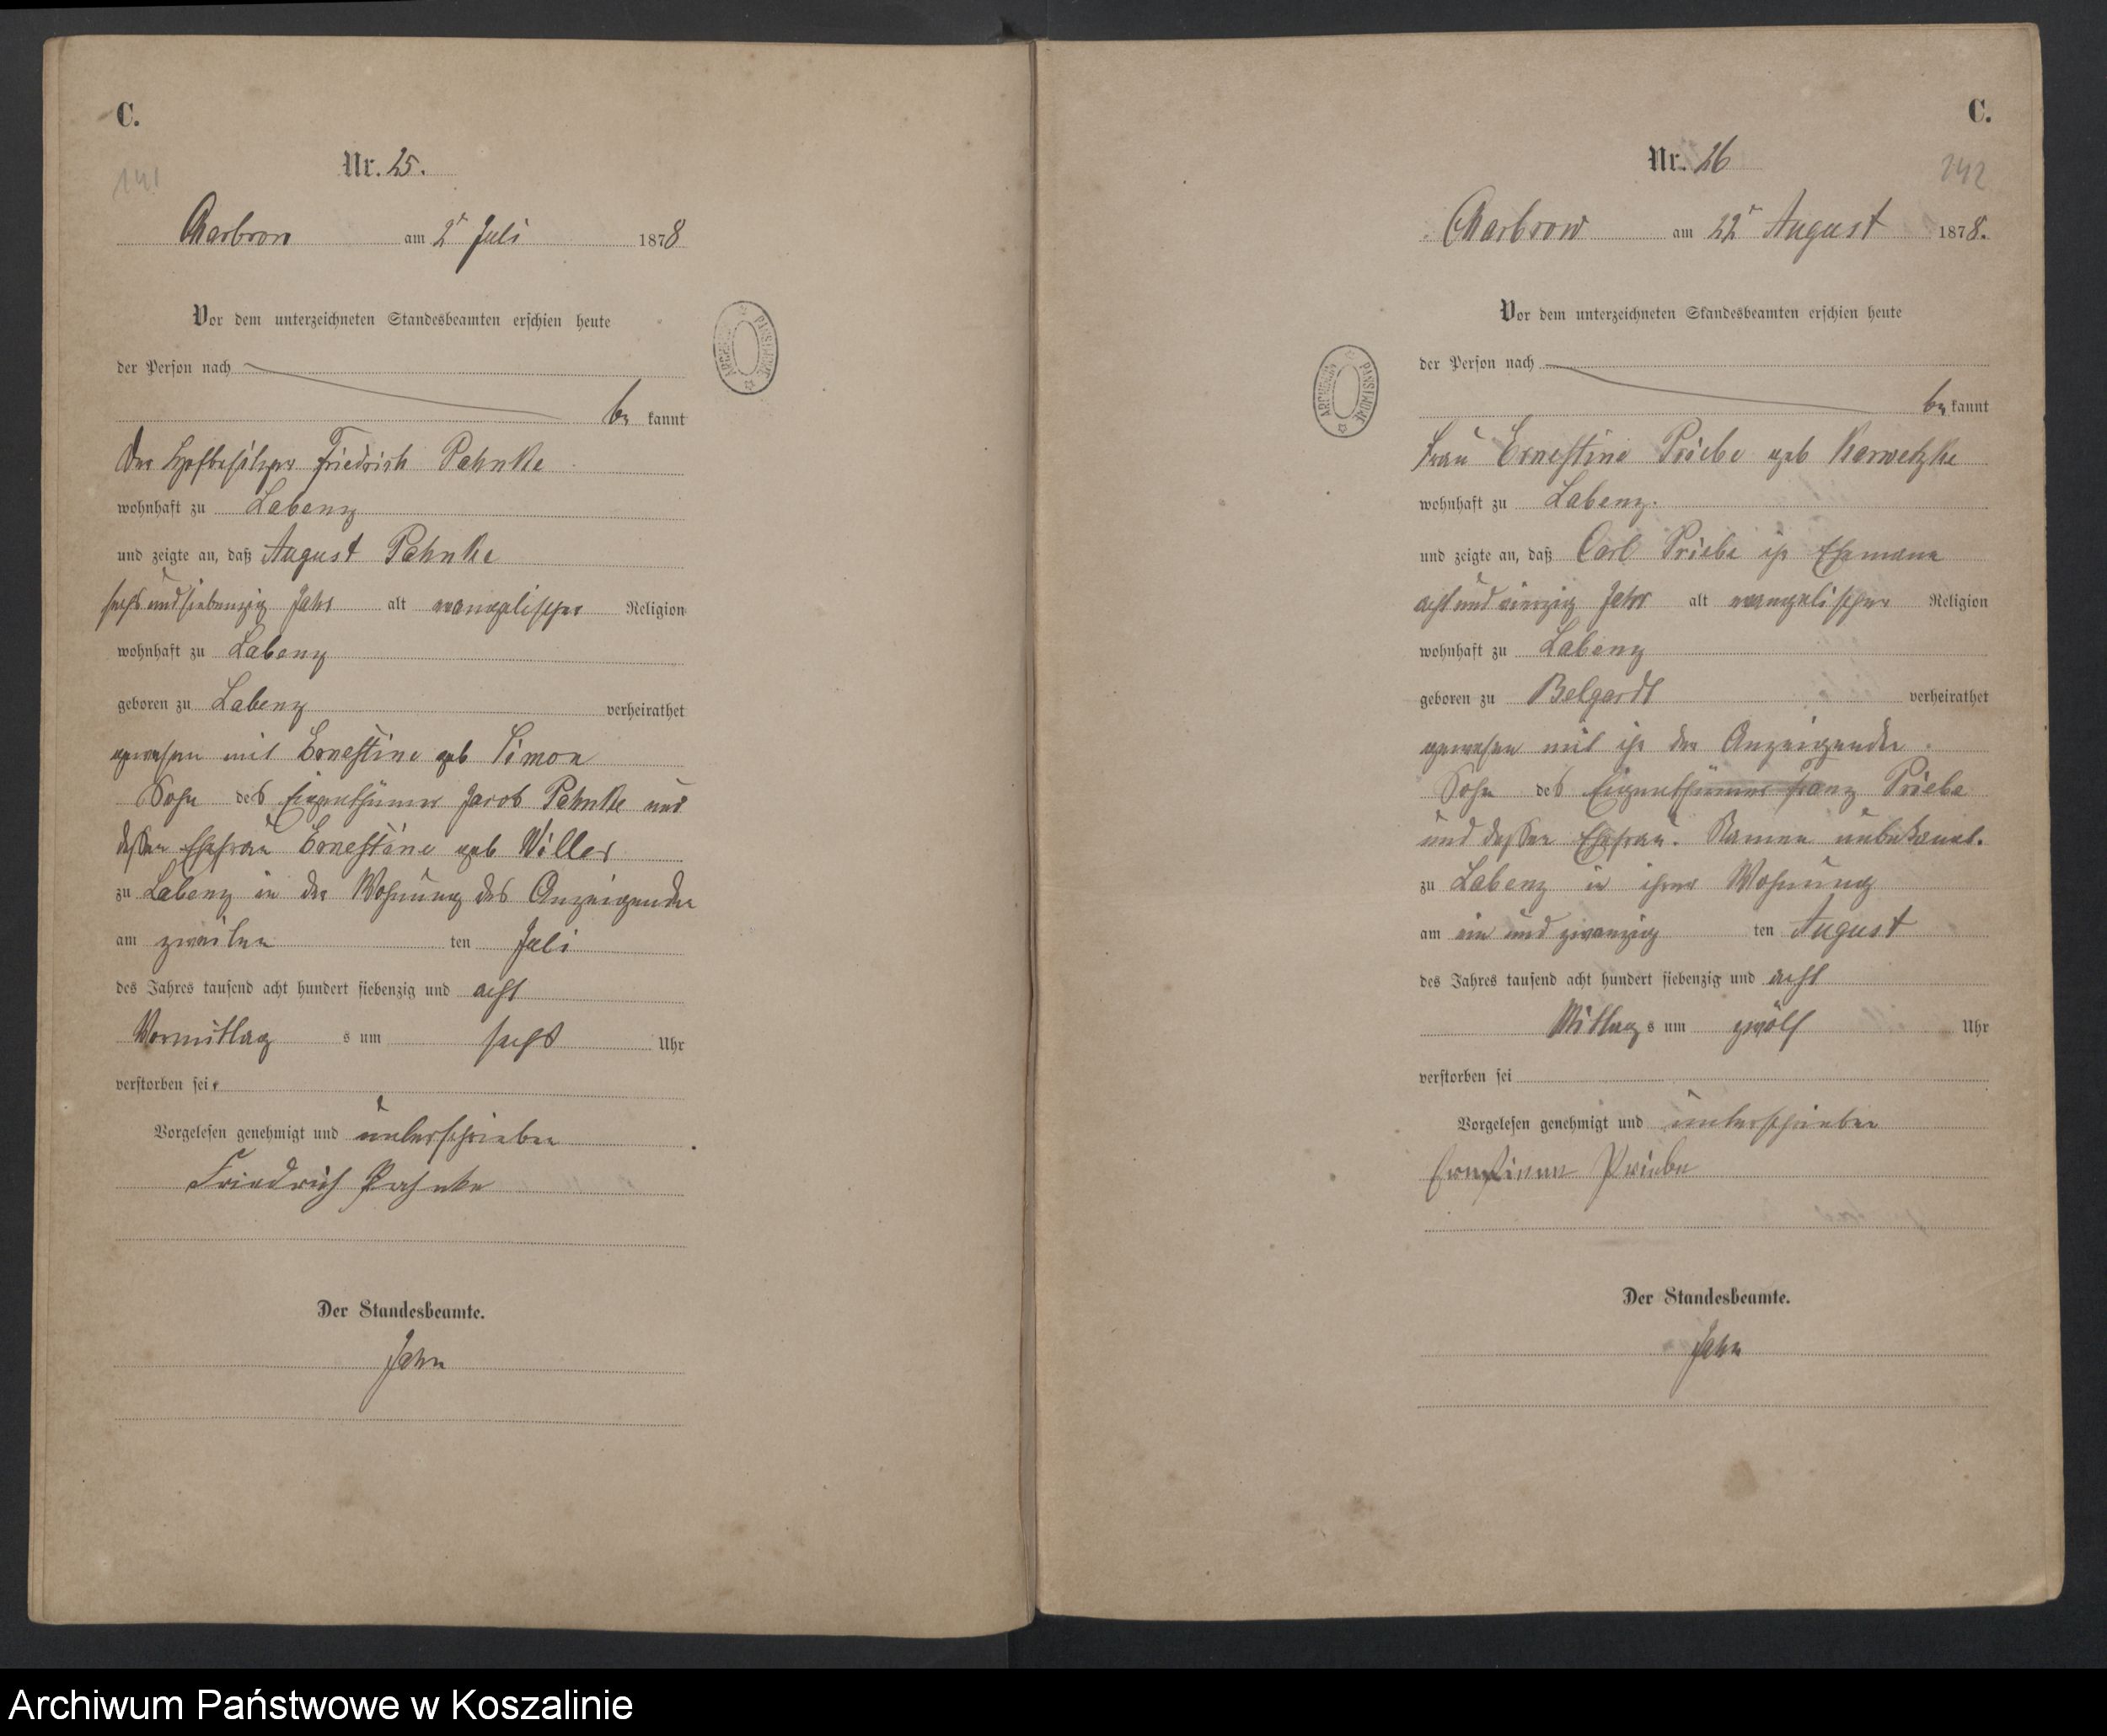 C.
141
Nr. 25.
Charbrow am 2ᵗ Juli 1878
Vor dem unterzeichneten Standesbeamten erschien heute
der Person nach
be kannt
der Hofbesitzer Friedrich Pahnke
wohnhaft zu Labenz
und zeigte an, daß August Pahnke
sechs und siebenzig Jahr alt evangelischer Religion
wohnhaft zu Labenz
geboren zu Labenz verheirathet
gewesen mit Ernestine geb Simon
Sohn des Eigenthümer Jacob Pahnke und
dessen Ehefrau Ernestine geb Willer
zu Labenz in der Wohnung des Anzeigenden
am zweiten ten Juli
des Jahres tausend acht hundert siebenzig und acht
Vormittag s um sechs Uhr
verstorben sei.
Vorgelesen genehmigt und unterschrieben
Friedrich Pahnke
Der Standesbeamte.
Jahn
ARCHIWUM PAŃSTWOWE
C.
Nr. 26
242
Charbrow am 22ᵗ August 1878.
Vor dem unterzeichneten Standesbeamten erschien heute
der Person nach
be kannt
Frau Ernestine Priebe geb Karwetzke
wohnhaft zu Labenz.
und zeigte an, daß Carl Priebe ihr Ehemann
acht und vierzig Jahr alt evangelischer Religion
wohnhaft zu Labenz
geboren zu Belgardt verheirathet
gewesen mit ihr der Anzeigenden
Sohn des Eigenthümer Franz Priebe
und dessen Ehefrau. Namen unbekannt.
zu Labenz in ihrer Wohnung
am ein und zwanzig ten August
des Jahres tausend acht hundert siebenzig und acht
Mittag s um zwölf Uhr
verstorben sei
Vorgelesen genehmigt und unterschrieben
Ernstinne Priebe
Der Standesbeamte.
Jahn
ARCHIWUM PAŃSTWOWE
Archiwum Państwowe w Koszalinie